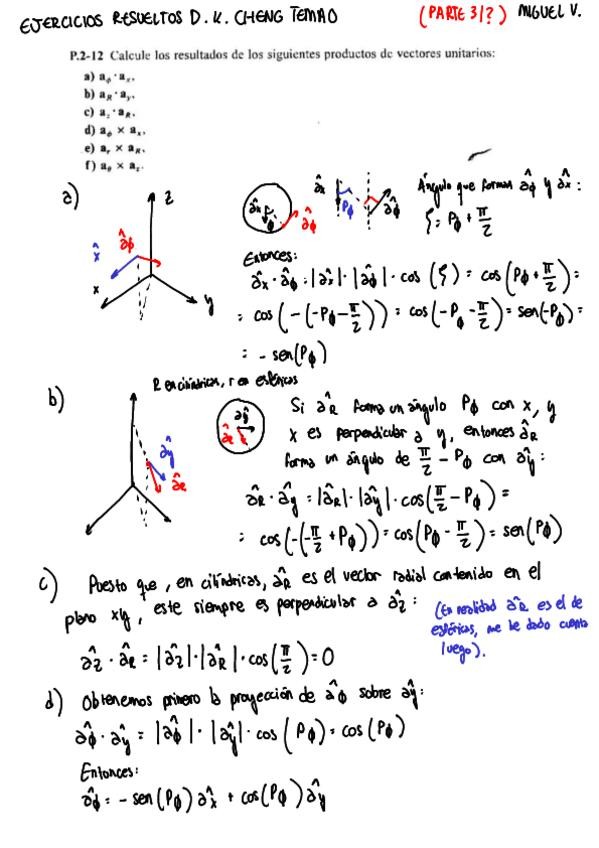 EJERCICIOS RESUELTOS D. K. CHENG TEMA0 (PARTE 3/?) MIGUEL V.
P.2-12 Calcule los resultados de los siguientes productos de vectores unitarios:
a) a_ϕ · a_x.
b) a_R · a_y.
c) a_z · a_R.
d) a_ϕ × a_x.
e) a_r × a_R.
f) a_θ × a_z.
a)
z
x̂
âϕ
x
y
âx Pϕ âϕ
âx Pϕ âϕ
Ángulo que forman âϕ y âx:
ζ = Pϕ + π/2
Entonces:
âx · âϕ = |âx| · |âϕ| · cos(ζ) = cos(Pϕ + π/2) =
= cos(-(-Pϕ - π/2)) = cos(-Pϕ - π/2) = sen(-Pϕ) =
= - sen(Pϕ)
R en cilíndricas, r en esféricas
b)
ây
âR
ây
âR
Si âR forma un ángulo Pϕ con x, y
x es perpendicular a y, entonces âR
forma un ángulo de π/2 - Pϕ con ây:
âR · ây = |âR| · |ây| · cos(π/2 - Pϕ) =
= cos(-(-π/2 + Pϕ)) = cos(Pϕ - π/2) = sen(Pϕ)
c) Puesto que, en cilíndricas, âR es el vector radial contenido en el
plano xy, este siempre es perpendicular a âz:
(En realidad âR es el de
esféricas, me he dado cuenta
luego).
âz · âR = |âz| · |âR| · cos(π/2) = 0
d) Obtenemos primero la proyección de âϕ sobre ây:
âϕ · ây = |âϕ| · |ây| · cos(Pϕ) = cos(Pϕ)
Entonces:
âϕ = - sen(Pϕ) âx + cos(Pϕ) ây